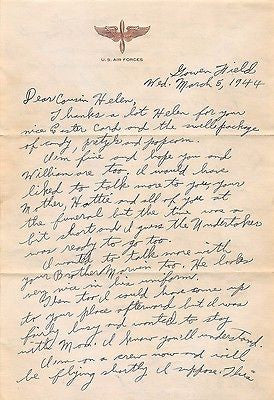 U.S. AIR FORCES
Gowen Field
Wed. March 5, 1944
Dear Cousin Helen,
Thanks a lot Helen for your
nice Easter Card and the swell package
of candy, pretzls and popcorn.
I'm fine and hope you and
William are too. I would have
liked to talk more to you, your
Mother, Hattie and all of you at
the funeral but the time was a
bit short and I guess the Undertaker
was ready to go too.
I wanted to talk more with
your Brother Marvin too. He looks
very nice in his uniform.
Then too I could have come up
to your place afterward but I was
fairly busy and wanted to stay
with Mom. I know you'll understand.
I am on a crew now and will
be flying shortly I suppose. This